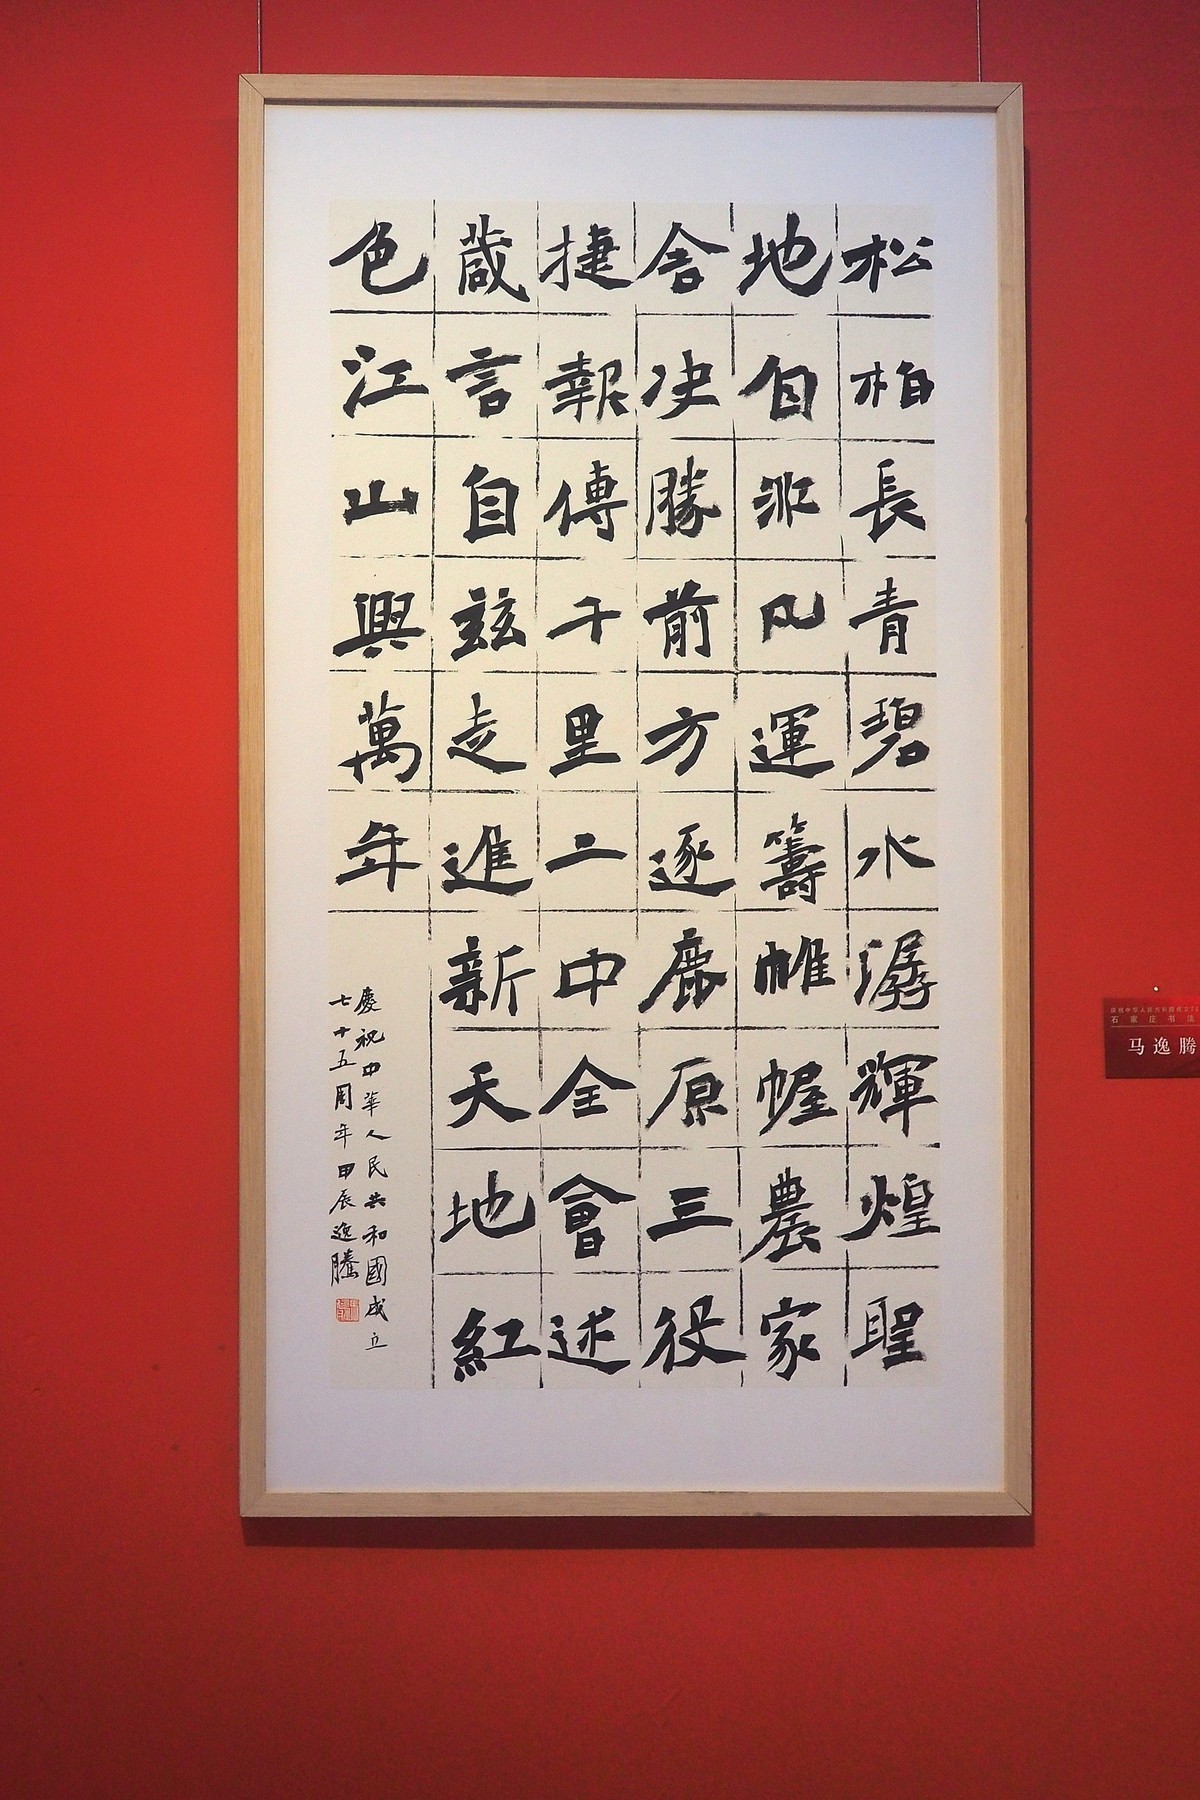 松柏長青碧水潺輝煌聖
地自非凡運籌帷幄農家
舍決勝前方逐鹿原三役
捷報傳千里二中全會述
箴言自茲走進新天地紅
色江山興萬年
慶祝中華人民共和國成立
七十五周年甲辰逸騰
石家庄书法
马逸腾